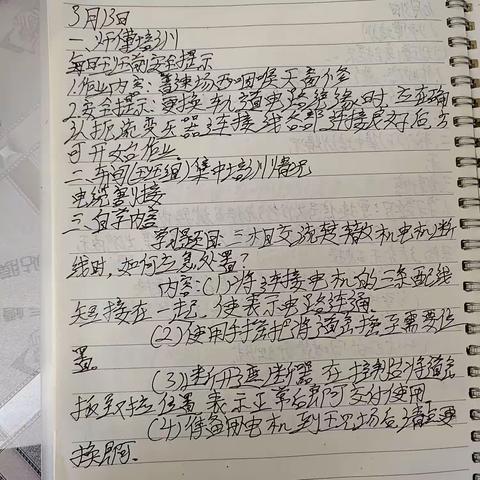 3月13日
一、好僅培训
每日班前安全提示
1.作业内容: 普速场西咽喉工畜修
2.安全提示: 更换轨道电路绝缘时,应正确
认扼流变压器连接线各部连接良好后,方
可开始作业。
二、车间(班组)集中培训情况
电缆割接
三、自学内容
学习题目: 三相交流转辙机电机断
线时,如何应急处置?
内容:(1)将连接电机的三条配线
短接在一起,使表示电路连通。
(2)使用手摇把将道岔摇至需要位
置。
(3)断开遮断器,在控制台将道岔
扳到位置,表示正常后即可交付使用
(4)待备用电机到现场后请点更
换即可。